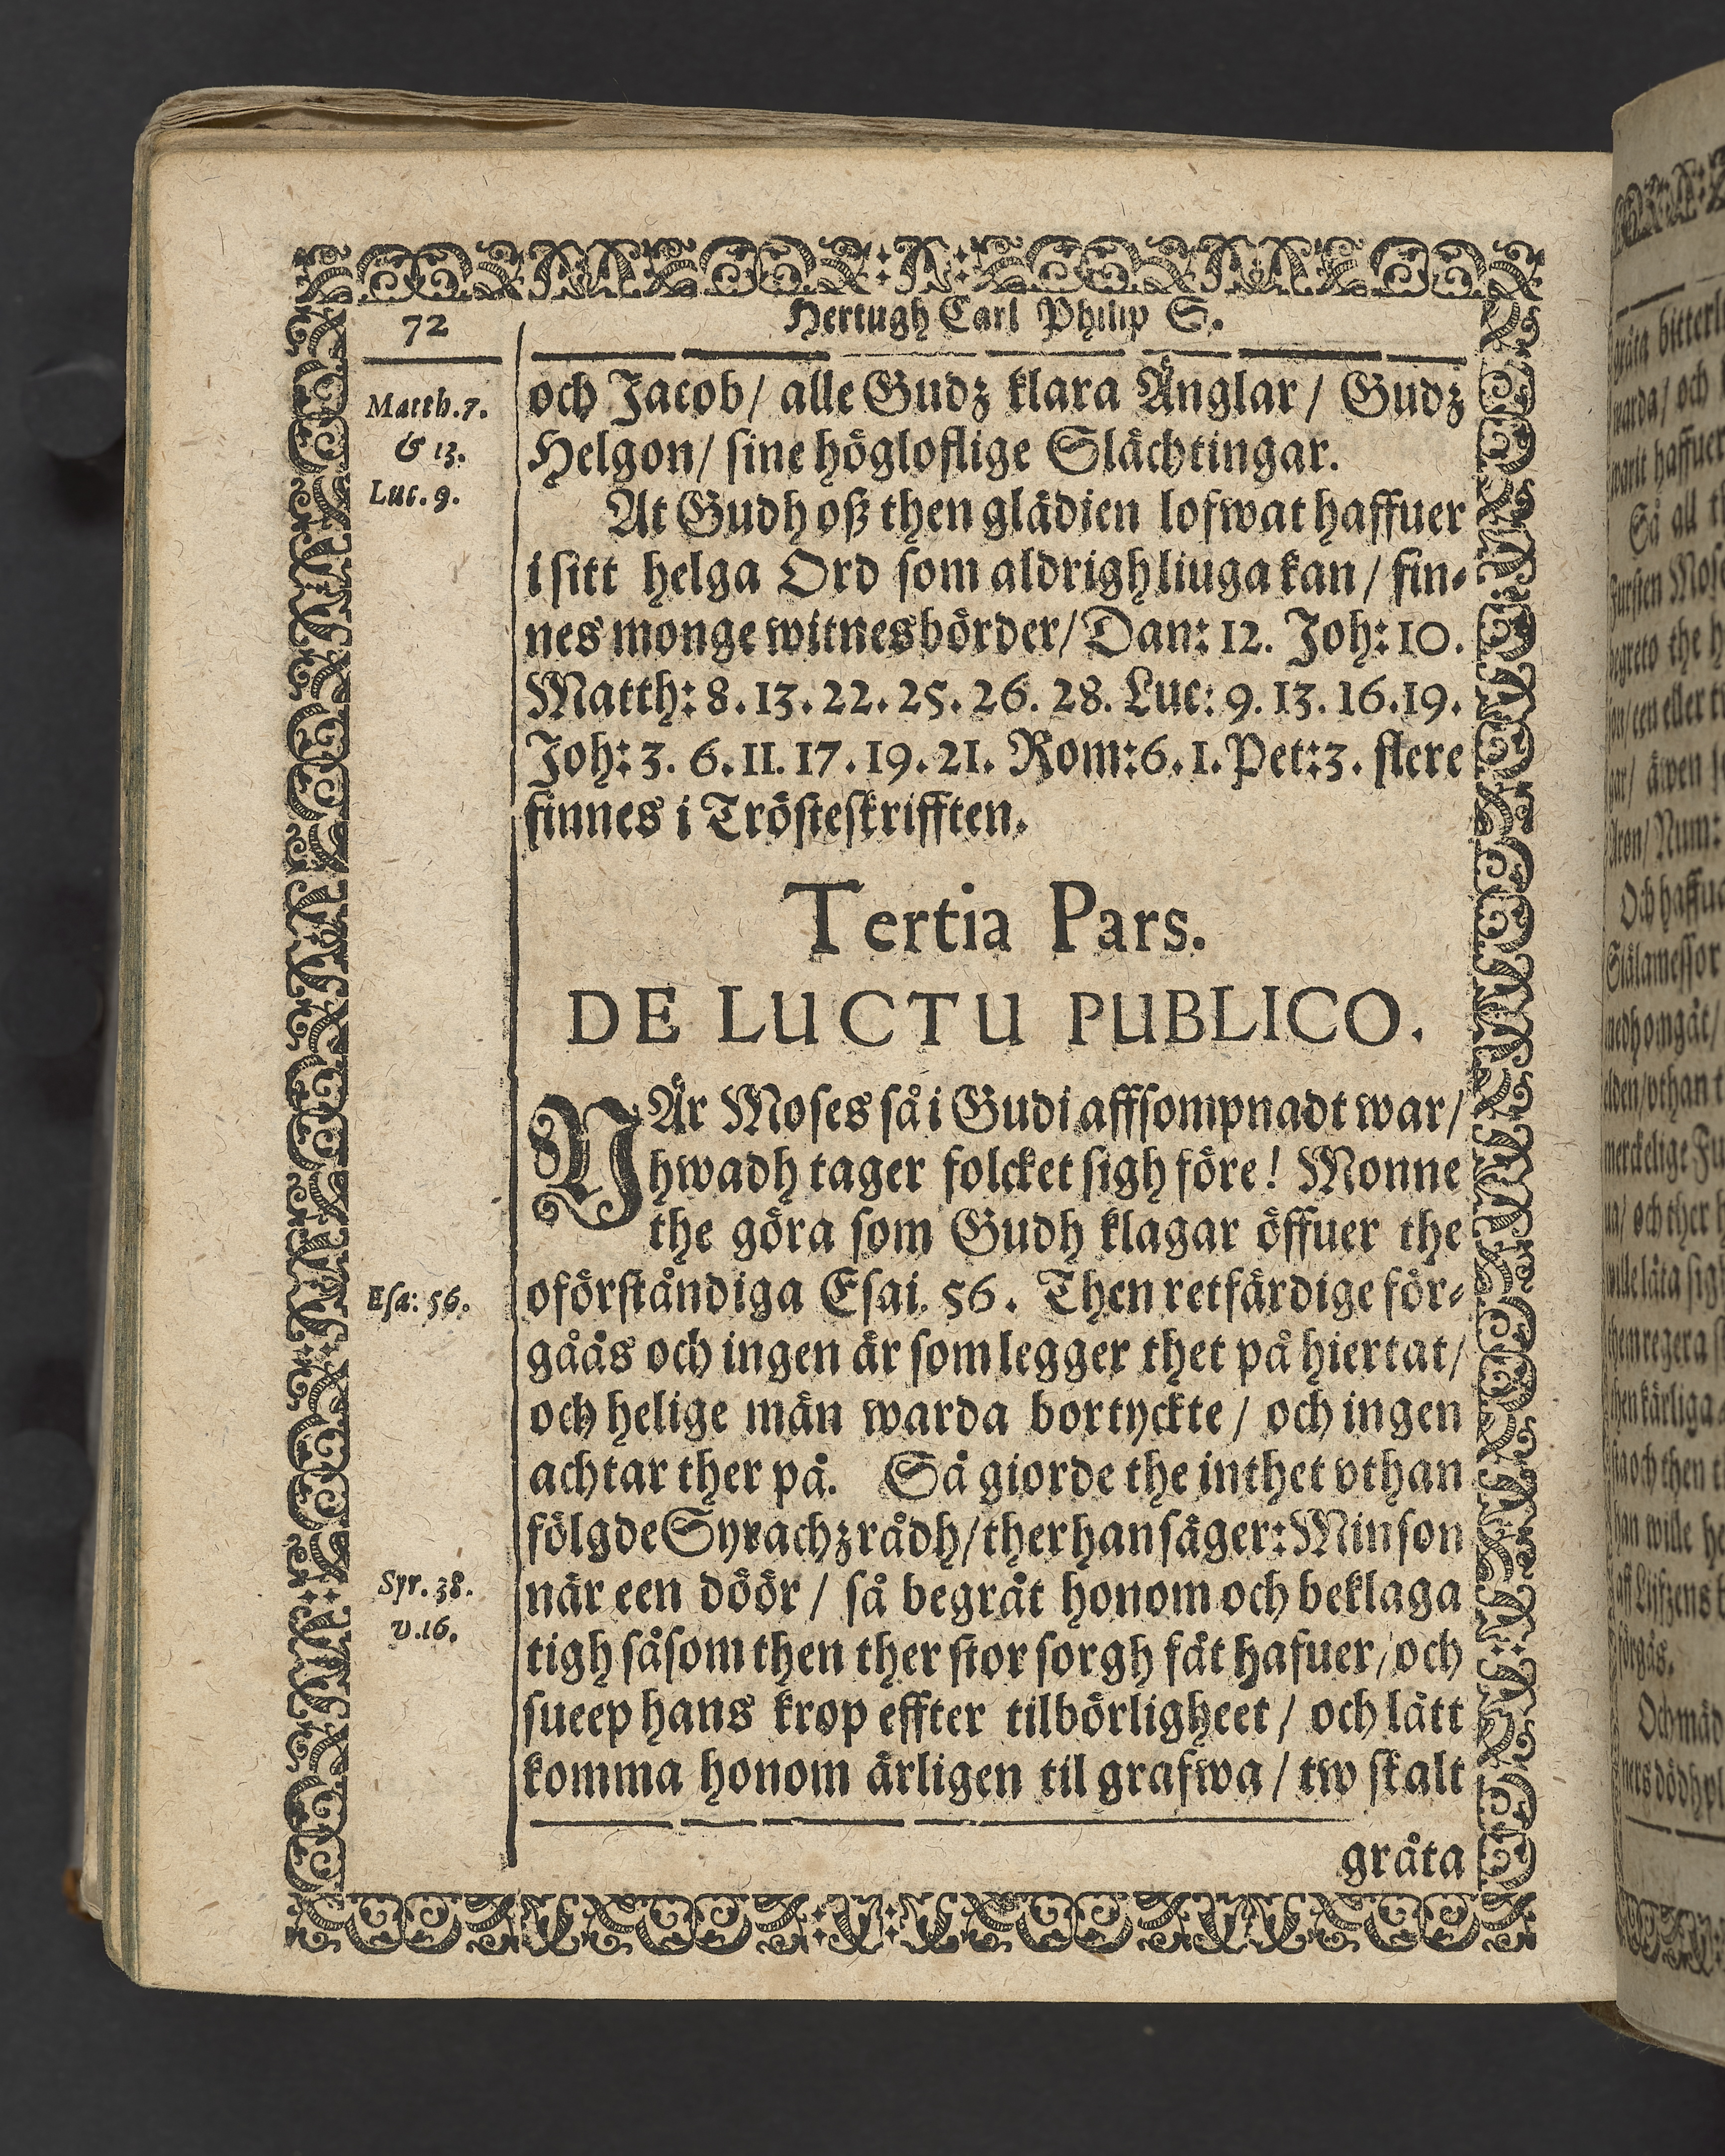 72
Hertugh Carl Philip S.
Matth. 7.
& 13.
Luc. 9.
och Jacob/ alle Gudz klara Änglar/ Gudz
Helgon/ sine högloflige Slächtingar.
At Gudh oß then glädien lofwat haffuer
i sitt helga Ord som aldrigh liuga kan/ fin-
nes monge witnesbörder/ Dan: 12. Joh: 10.
Matth: 8. 13. 22. 25. 26. 28. Luc: 9. 13. 16. 19.
Joh: 3. 6. 11. 17. 19. 21. Rom: 6. 1. Pet: 3. flere
finnes i Trösteskrifften.
Tertia Pars.
DE LUCTU PUBLICO.
NÄr Moses så i Gudi affsompnadt war/
hwadh tager folcket sigh före! Monne
the göra som Gudh klagar öffuer the
Esa: 56.
oförståndiga Esai. 56. Then retfärdige för-
gåås och ingen är som legger thet på hiertat/
och helige män warda bortyckte/ och ingen
achtar ther på. Så giorde the inthet vthan
fölgde Syrachz rådh/ ther han säger: Min son
Syr. 38.
v. 16.
när een döör/ så begråt honom och beklaga
tigh såsom then ther stor sorgh fåt hafuer/ och
sueep hans krop effter tilbörligheet/ och lått
komma honom ärligen til grafwa/ tw skalt
gråta